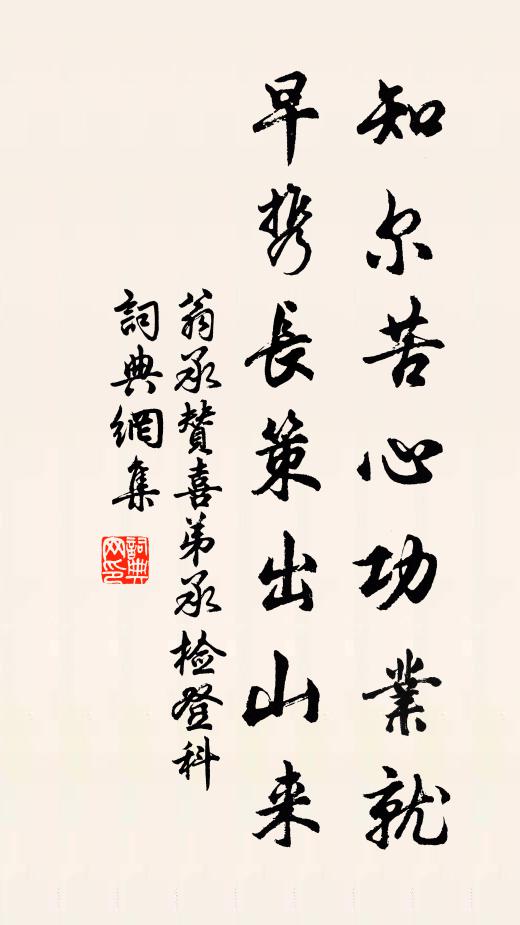 知尔苦心功業就
早携長策出山来
翁承贊喜弟承检登科
詞典網集
詞典网印